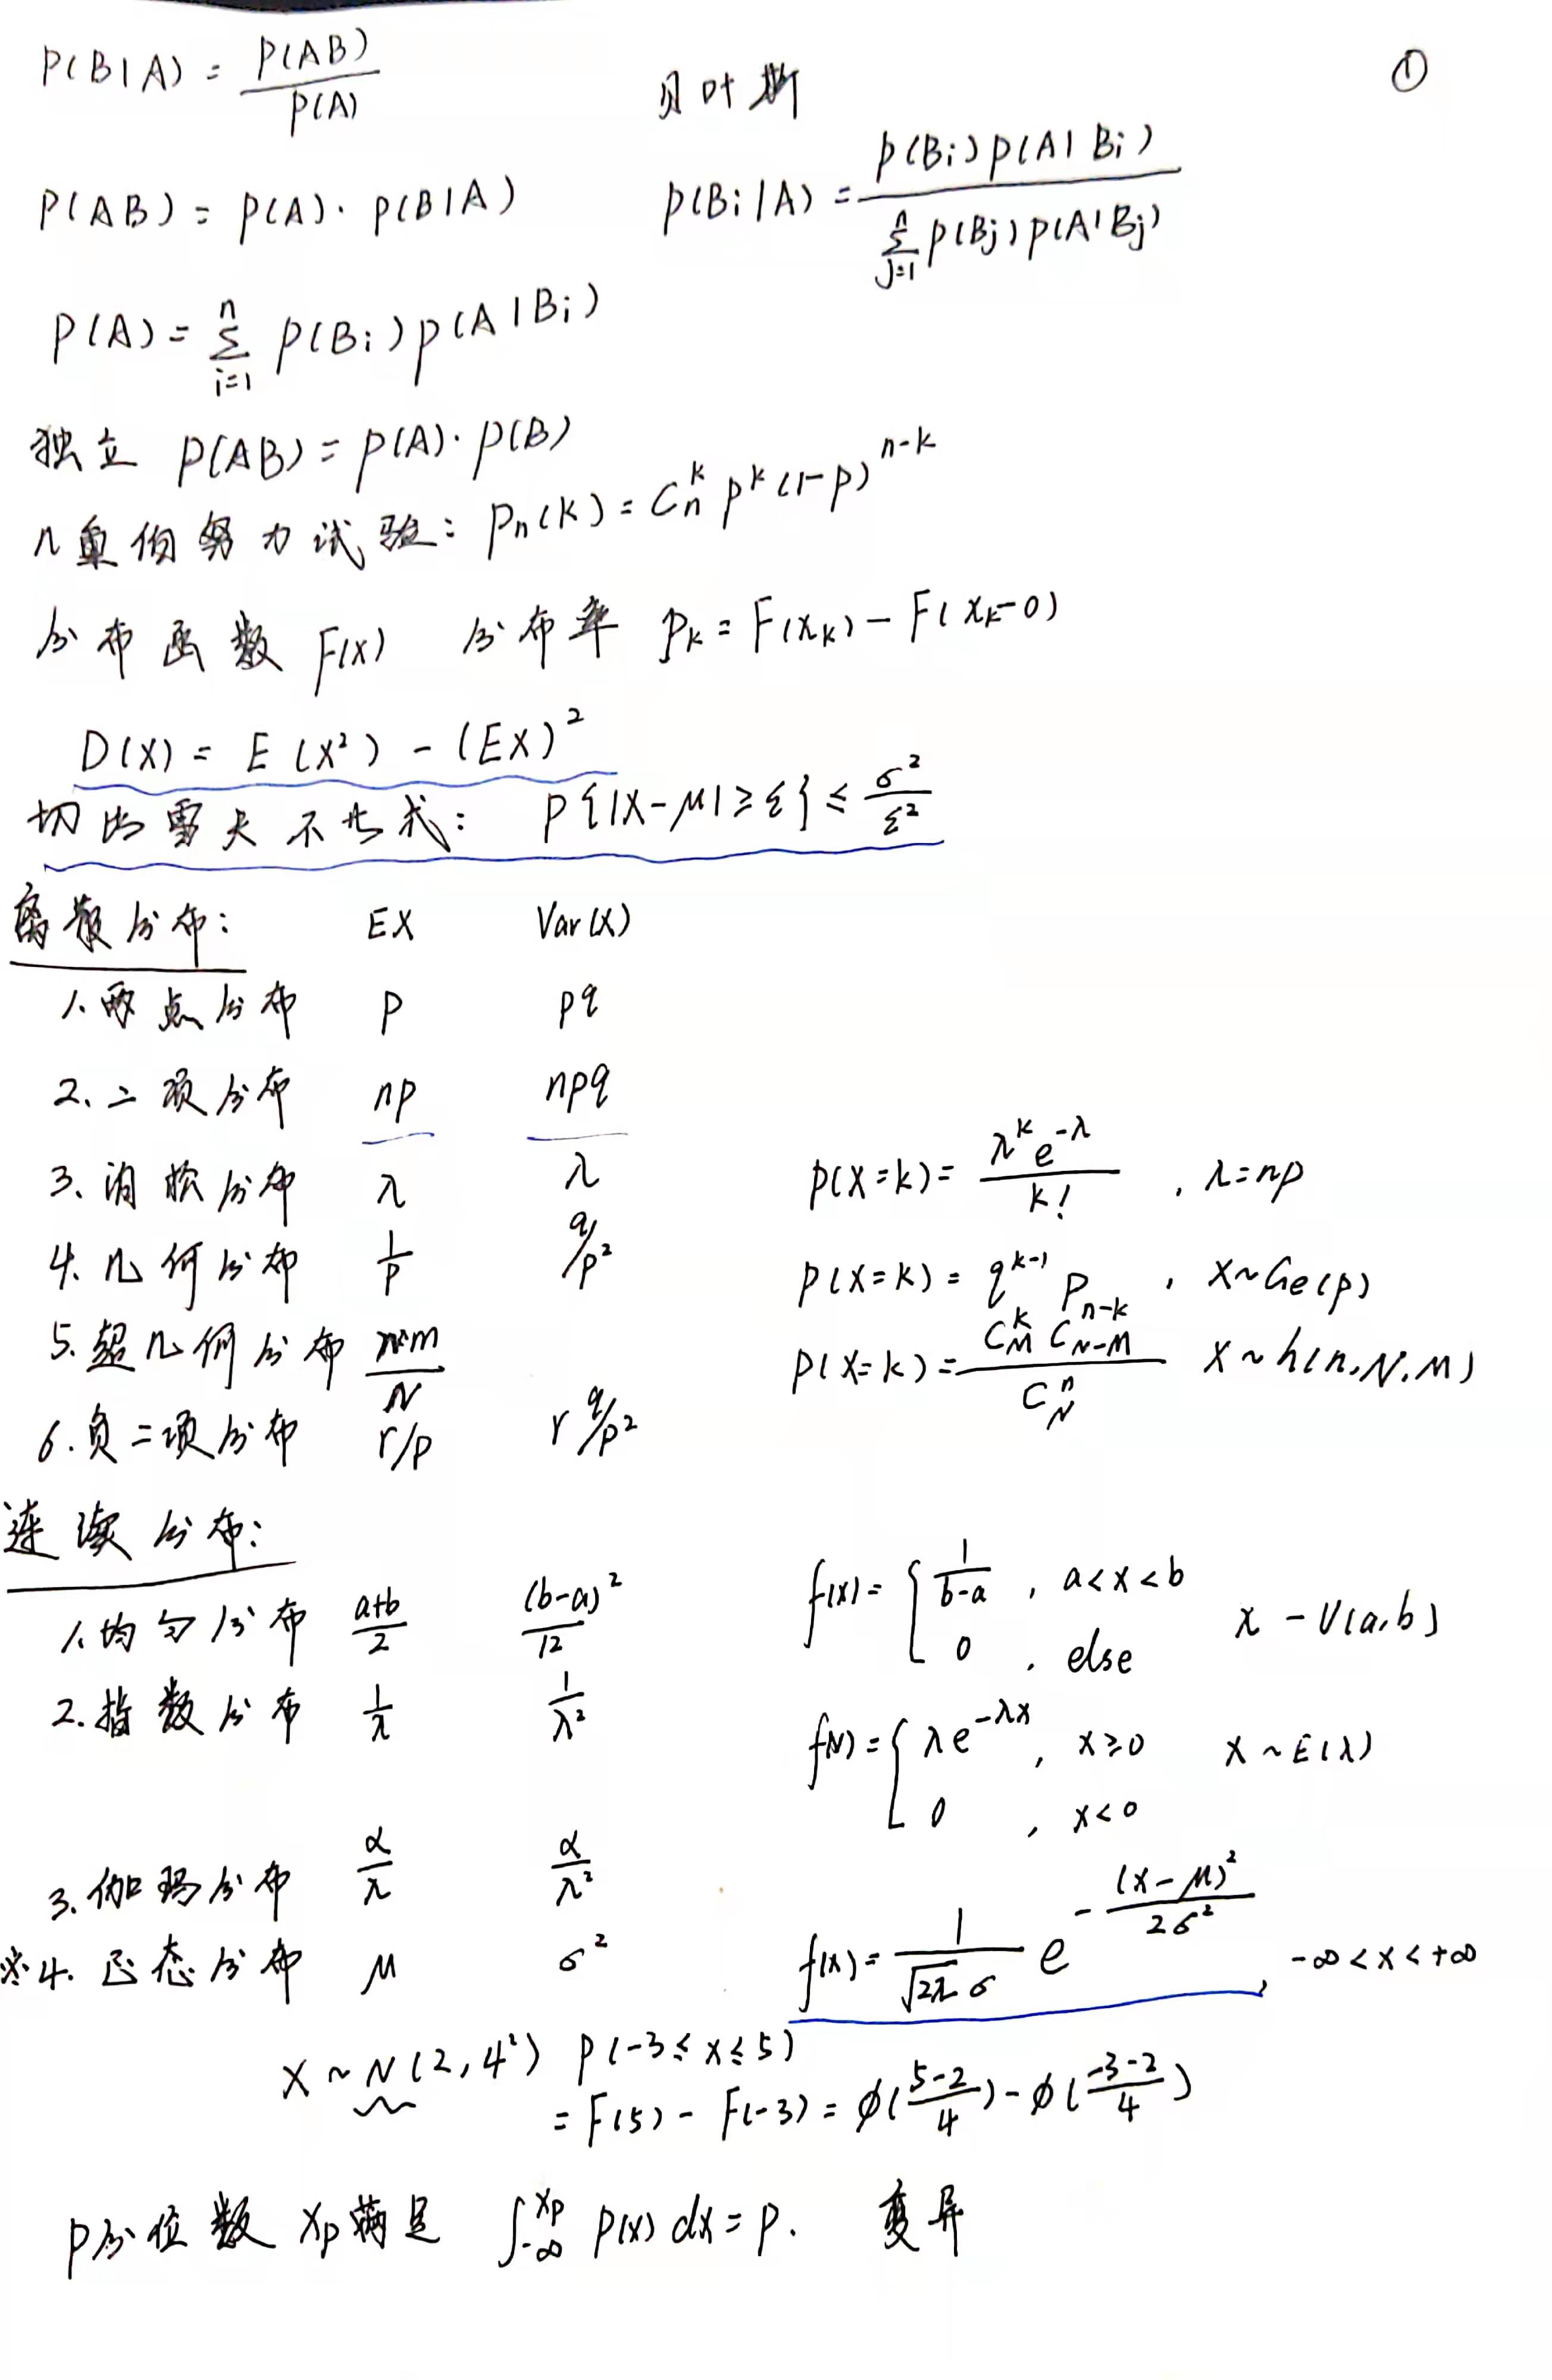 ①
P(B|A) = P(AB)/P(A)
贝叶斯
P(AB) = P(A)·P(B|A)
P(Bi|A) = P(Bi)P(A|Bi) / Σ_{j=1}^{n} P(Bj)P(A|Bj)
P(A) = Σ_{i=1}^{n} P(Bi)P(A|Bi)
独立 P(AB) = P(A)·P(B)
n重伯努力试验: Pn(k) = C_n^k p^k (1-p)^{n-k}
分布函数 F(x) 分布率 Pk = F(xk) - F(xk-0)
D(X) = E(X²) - (EX)²
切比雪夫不等式: P{|X-μ|≥ε} ≤ σ²/ε²
离散分布: EX Var(X)
1. 两点分布 p pq
2. 二项分布 np npq
3. 泊松分布 λ λ P(X=k) = λ^k e^{-λ} / k! , λ=np
4. 几何分布 1/p q/p² P(X=k) = q^{k-1} p , X~Ge(p)
5. 超几何分布 n·m/N P(X=k) = C_M^k C_{N-M}^{n-k} / C_N^n X~h(n,N,M)
6. 负二项分布 r/p r q/p²
连续分布:
1. 均匀分布 (a+b)/2 (b-a)²/12 f(x) = { 1/(b-a) , a<x<b X - U(a,b)
0 , else
2. 指数分布 1/λ 1/λ² f(x) = { λe^{-λx} , x≥0 X~E(λ)
0 , x<0
3. 伽玛分布 α/λ α/λ²
※4. 正态分布 μ σ² f(x) = 1/(√2π σ) e^{-(x-μ)²/2σ²} , -∞<x<+∞
X~N(2, 4²) P(-3≤x≤5)
= F(5) - F(-3) = φ((5-2)/4) - φ((-3-2)/4)
P分位数 xp满足 ∫_{-∞}^{xp} p(x)dx = p. 变异